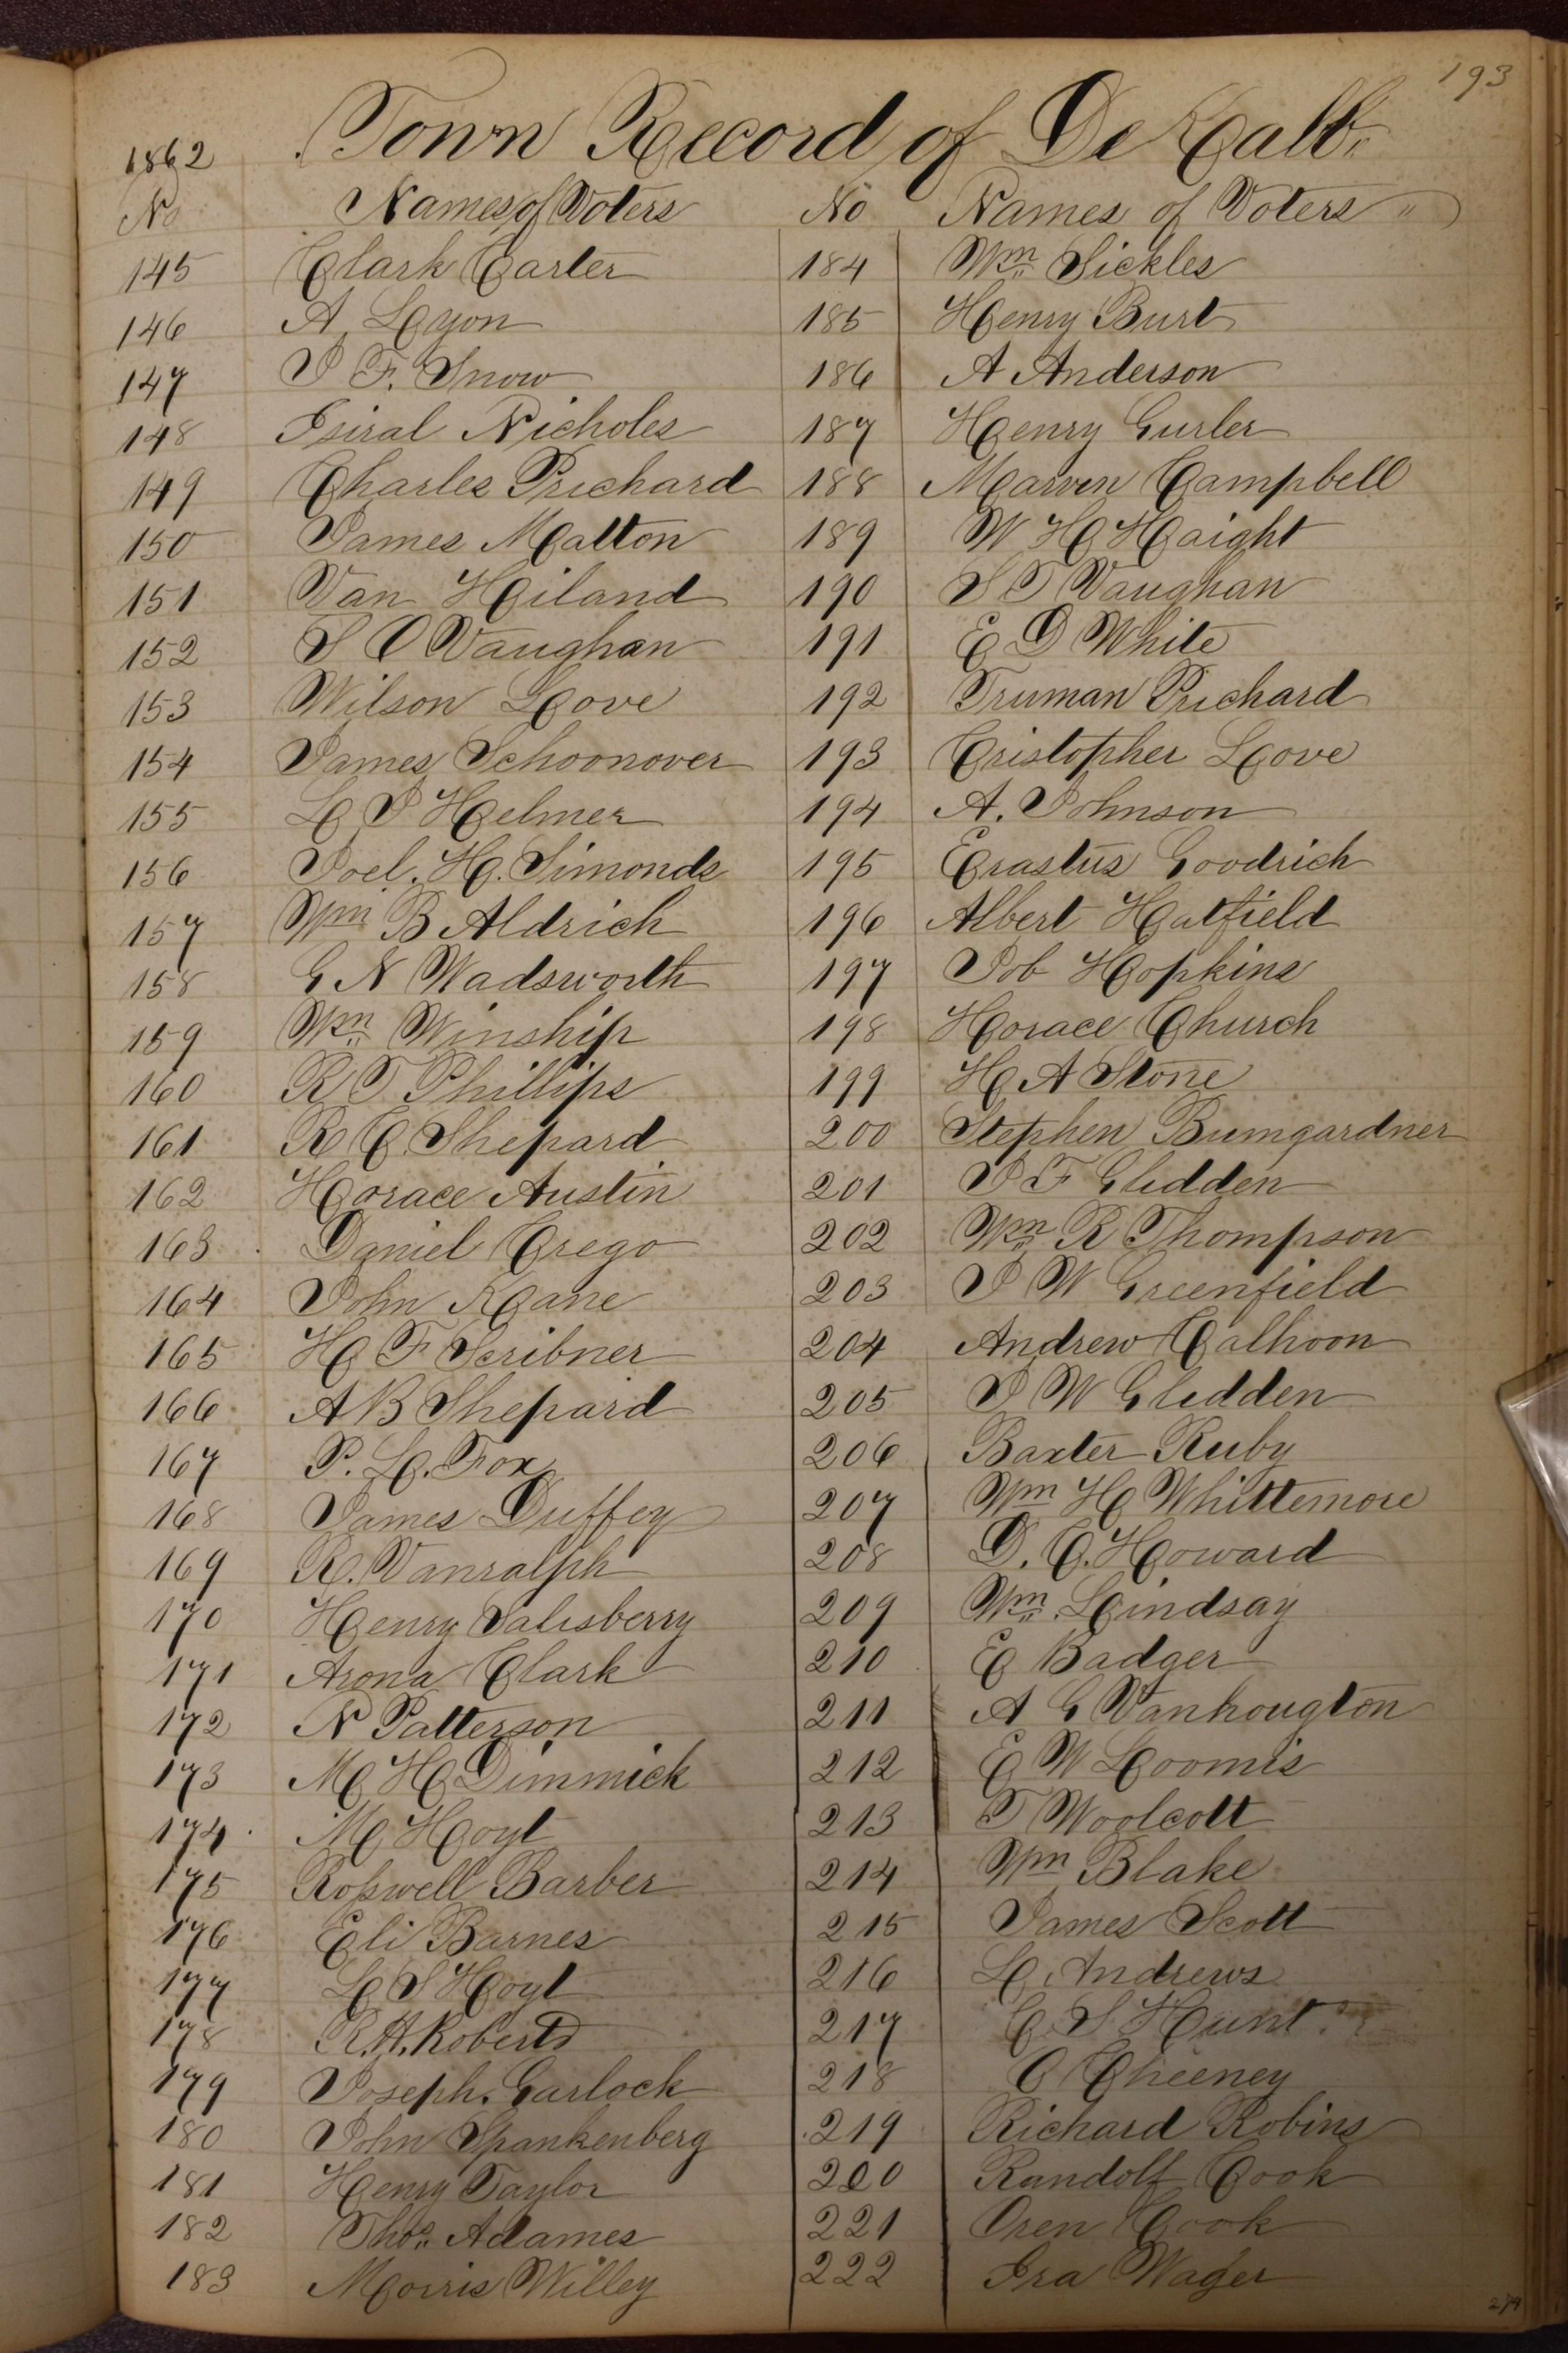 193
1862 Town Record of De Kalb
No Names of Voters No Names of Voters "
145 Clark Carter 184 Wm Sickles
146 A. Lyon 185 Henry Burt
147 J F. Snow 186 A Anderson
148 Isiral Nicholes 187 Henry Gurler
149 Charles Prichard 188 Marven Campbell
150 James Malton 189 W H Haight
151 Van Hiland 190 S T Vaughan
152 S O Vaughan 191 E D White
153 Wilson Love 192 Truman Prichard
154 James Schoonover 193 Cristopher Love
155 L J Helmer 194 A. Johnson
156 Joel. H. Simonds 195 Erastus Goodrich
157 Wm B Aldrich 196 Albert Hatfield
158 G N Wadsworth 197 Job Hopkins
159 Wm Winship 198 Horace Church
160 R T Phillips 199 H A Stone
161 R C Shepard 200 Stephen Bumgardner
162 Horace Austin 201 J F Glidden
163 Daniel Crego 202 Wm R Thompson
164 John Kane 203 J W Greenfield
165 H F Scribner 204 Andrew Calhoon
166 A B Shepard 205 J W Glidden
167 P. L. Fox 206 Baxter Ruby
168 James Duffey 207 Wm H Whittemore
169 R. Vanralph 208 D. C. Howard
170 Henry Salisberry 209 Wm. Lindsay
171 Arona Clark 210 E Badger
172 N Patterson 211 A G Vanhougton
173 M H Dimmick 212 E W Loomis
174 M Hoyt 213 T Woolcott
175 Roswell Barber 214 Wm Blake
176 Eli Barnes 215 James Scott
177 L S Hoyt 216 L Andrews
178 R. H. Roberts 217 C S Hunt.
179 Joseph. Garlock 218 O Cheeney
180 John Spankenberg 219 Richard Robins
181 Henry Taylor 220 Randolf Cook
182 Thos. Adames 221 Oren Cook
183 Morris Willey 222 Ira Wager